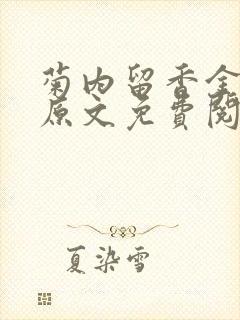 菊内留香全
原文免费阅
夏染雪